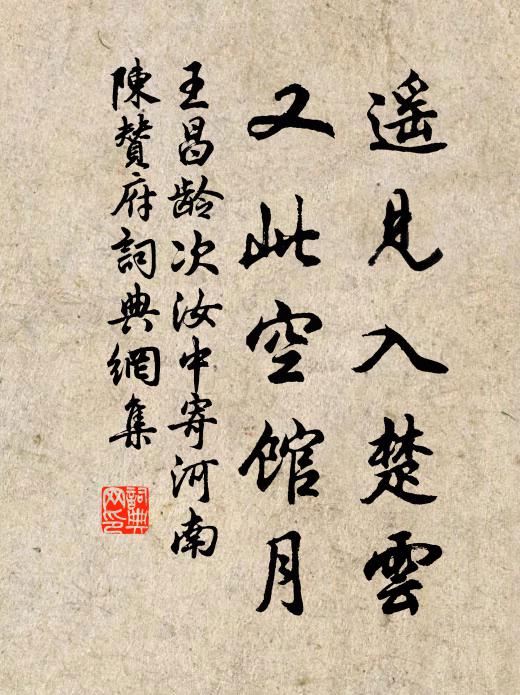 遥見入楚雲
又此空館月
王昌齡次汝中寄河南
陳贊府詞典網集
詞典網印